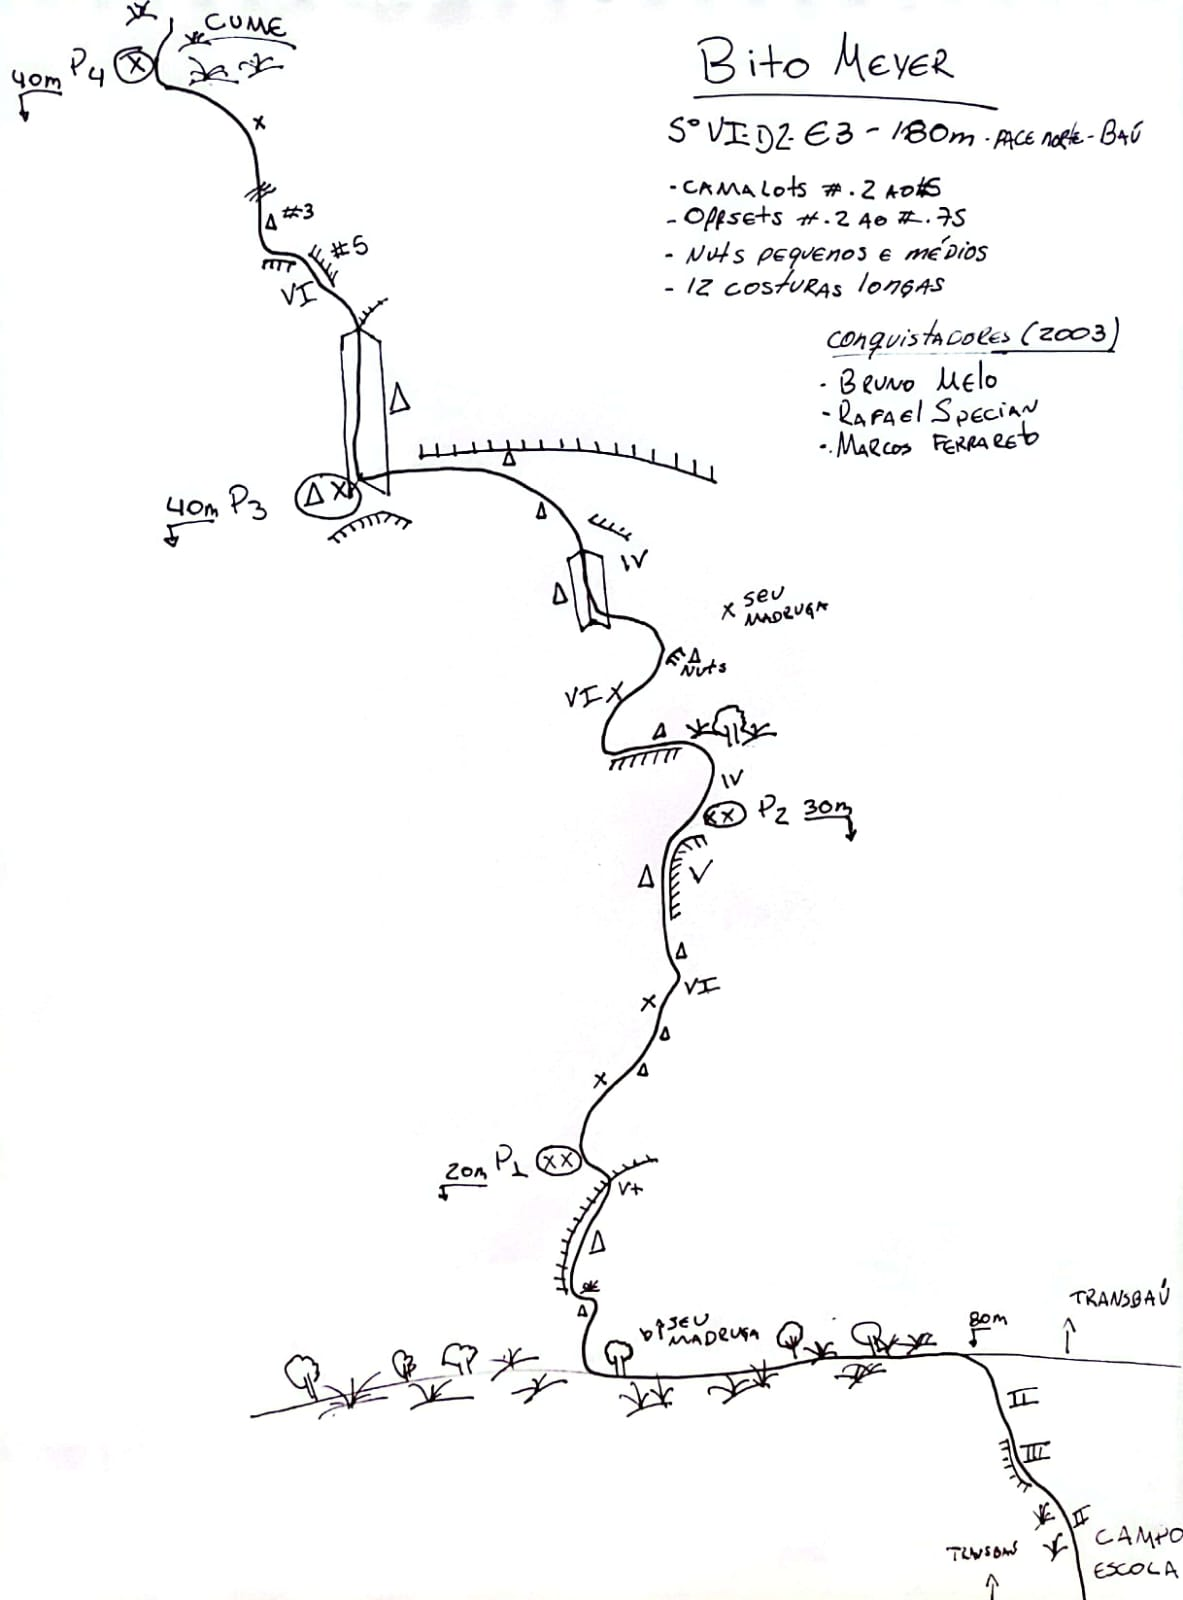 CUME
P4
40m
Bito MEYER
5° VI. D2. E3 - 180m - FACE NORTE - BAÚ
- CAMALOTS #.2 AO #5
- OFFSETS #.2 AO #.75
- NUTS PEQUENOS E MÉDIOS
- 12 COSTURAS LONGAS
CONQUISTADORES (2003)
- BRUNO MELO
- RAFAEL SPECIAN
- MARCOS FERRARETO
#3
#5
VI
40m P3
IV
x SEU
MADRUGA
NUTS
VI
IV
P2 30m
V
VI
20m P1
V+
SEU
MADRUGA
80m
TRANSBAÚ
II
III
II
CAMPO
ESCOLA
TRANSBAÚ